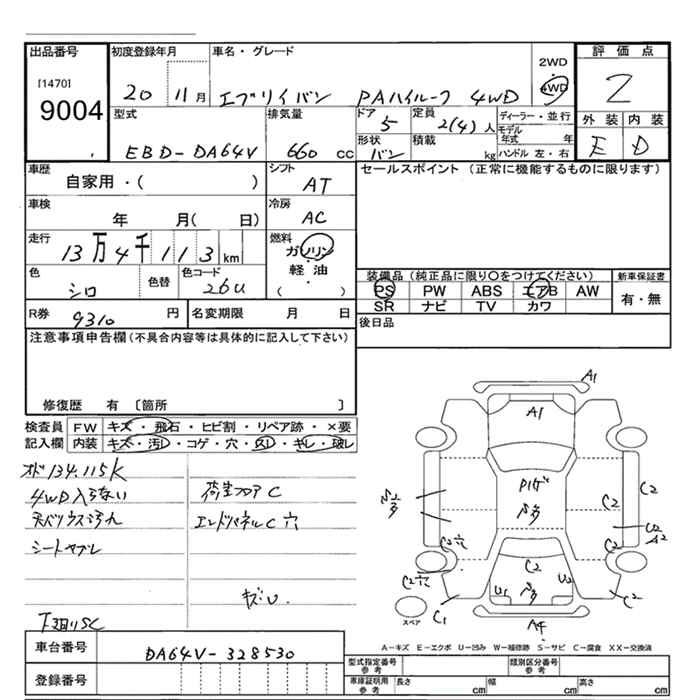 出品番号 初度登録年月 車名・グレード 評価点
[1470]
9004
20 11月 エブリイバン PAハイルーフ 4WD
2WD
4WD
2
型式 排気量 ドア 定員 ディーラー・並行 外装 内装
EBD-DA64V 660cc 5 2(4)人
モデル年式 年
形状 積載
バン kg ハンドル 左・右
E D
車歴 シフト セールスポイント (正常に機能するものに限ります)
自家用・( ) AT
車検 冷房
年 月( 日) AC
走行 燃料
13万4千113km ガソリン・軽油
( )
色 色替 色コード
シロ 26U
装備品(純正品に限り○をつけてください) 新車保証書
PS PW ABS エアB AW 有・無
SR ナビ TV カワ
R券 9310円 名変期限 月 日
後日品
注意事項申告欄(不具合内容等は具体的に記入して下さい)
修復歴 有 〔箇所 〕
検査員 FW キズ・飛石・ヒビ割・リペア跡・×要
記入欄 内装 キズ・汚レ・コゲ・穴・スレ・キレ・破レ
134.115K
4WD入らない
荷室フロアC
エンドパネルC穴
シートヤブレ
キズU
下廻りSC
A1
A1
C2
C2
C2
C2
C2
U1
U2
C1
C2
A4
スペア
A-キズ E-エクボ U-凹み W-補修跡 S-サビ C-腐食 XX-交換済
車台番号 DA64V-328530
型式指定番号 参考 類別区分番号 参考
登録番号
車庫証明用 参考 長さ cm 幅 cm 高さ cm